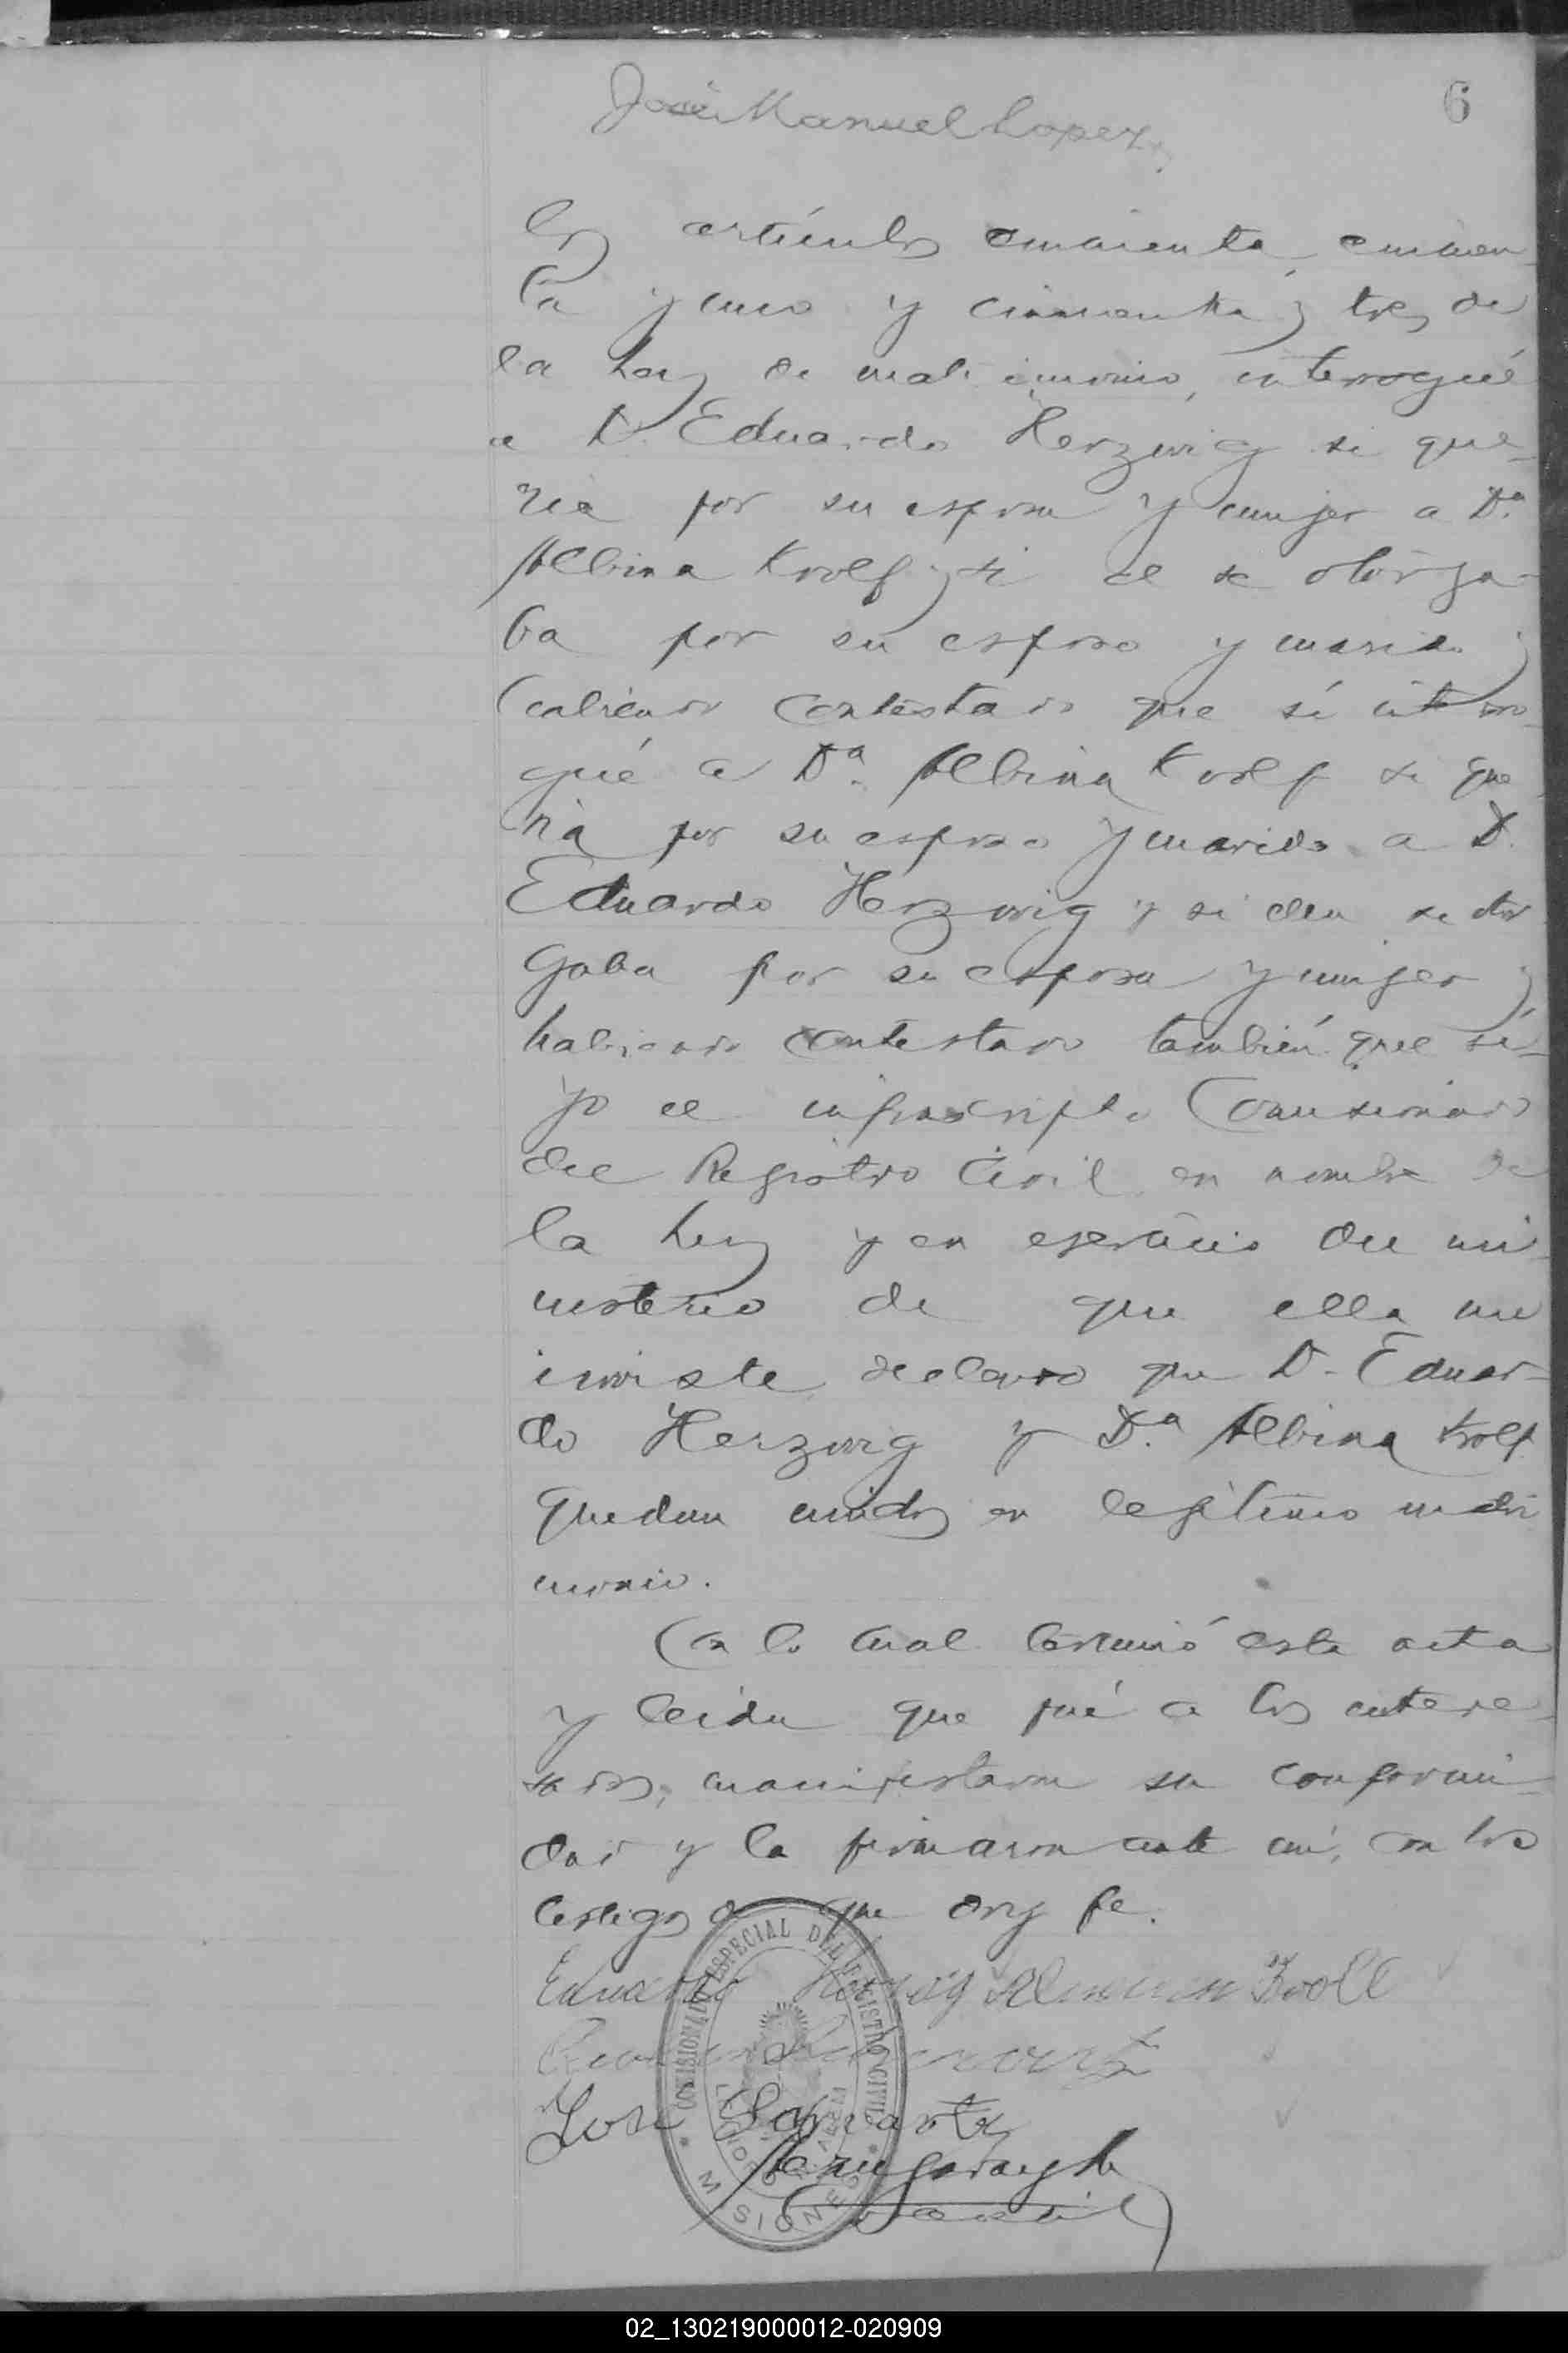 José Manuel Lopez
6
los artículos cincuenta, cincuen-
ta y uno y cincuenta y tres de
la Ley de matrimonio, interrogué
a D. Eduardo Herzwig si que-
ria por su esposa y mujer a Dª
Albina Krolf y si él se otorga-
ba por su esposo y marido y
habiendo contestado que sí interro-
gué a Dª. Albina Krolf si que-
ria por su esposo y marido a D.
Eduardo Herzwig y si ella se otor
gaba por su esposa y mujer y
habiendo contestado también que sí-
yo el infrascripto Comisionado
del Registro Civil en nombre de
la Ley y en ejercicio del mi-
nisterio de que ella me
inviste, declaro que D. Eduar-
do Herzwig y D.ª Albina Krolf
quedan unidos en legítimo matri
monio.
Con lo cual terminó esta acta
y leida que fué a los intere-
sados, manifestaron su conformi-
dad y la firmaron ante mí, con los
testigos de que doy fe.
Eduardo Kroll
José Schwartz
COMISIONADO ESPECIAL DEL REGISTRO CIVIL
MISIONES
02_130219000012-020909